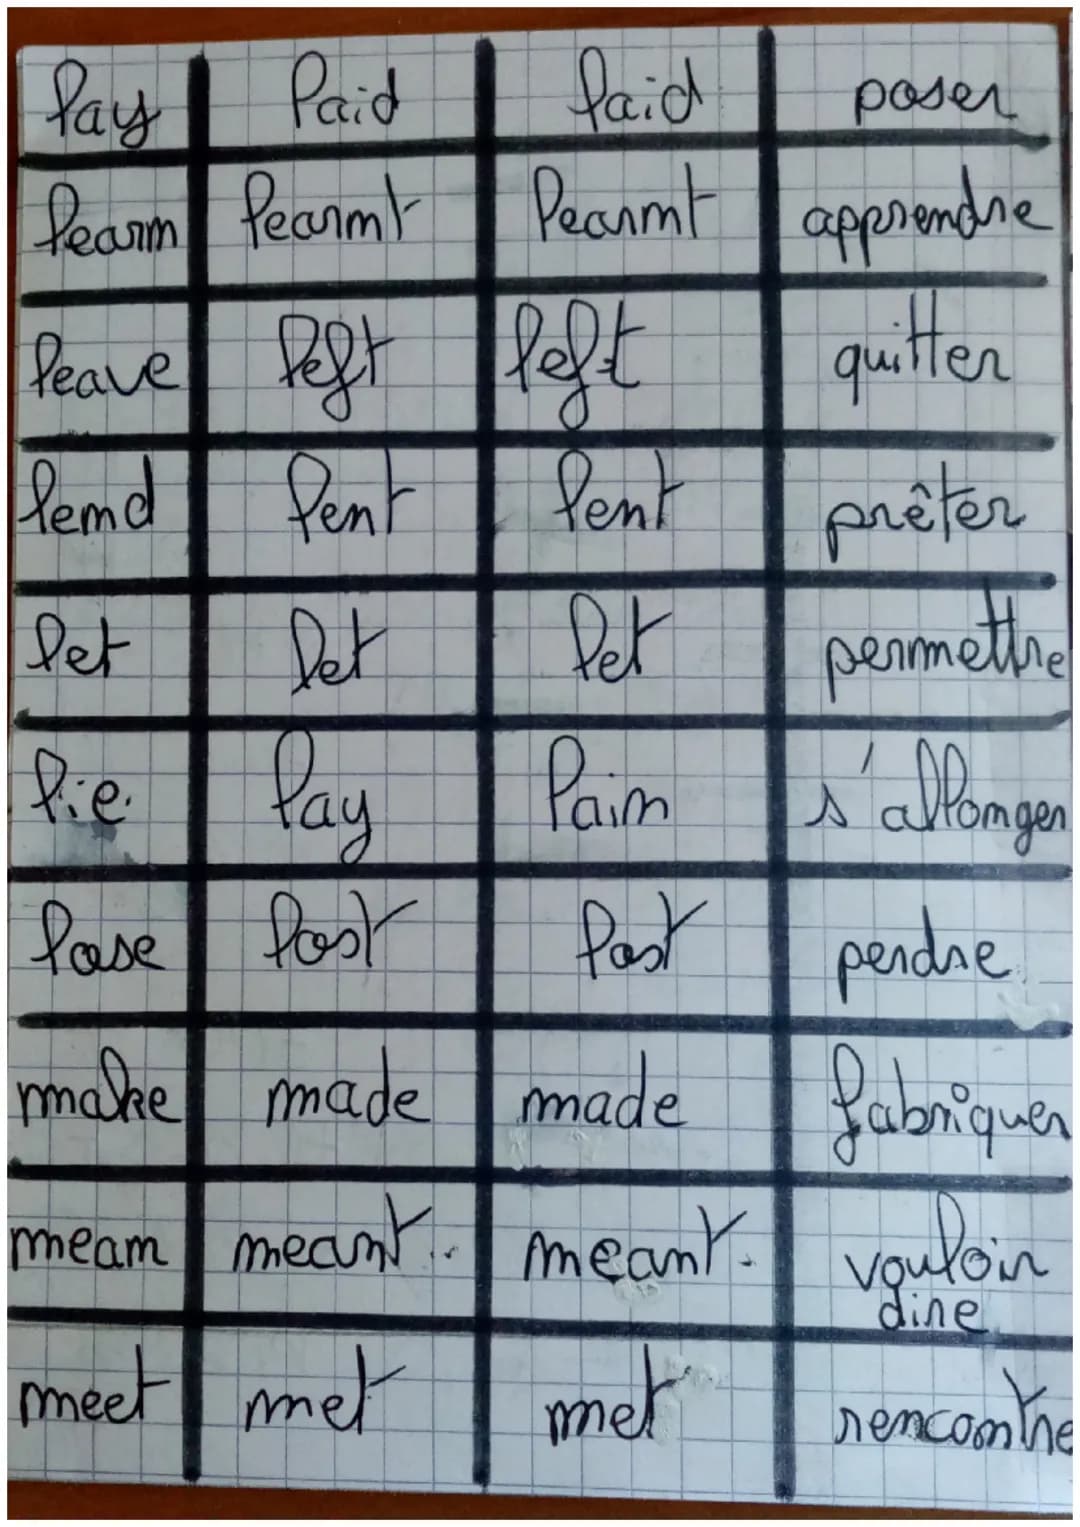 lay laid laid poser
learn learnt learnt apprendre
leave left left quitter
lend lent lent prêter
let let let permettre
lie lay lain s'allonger
lose lost lost perdre
make made made fabriquer
mean meant meant vouloir
dire
meet met met rencontre